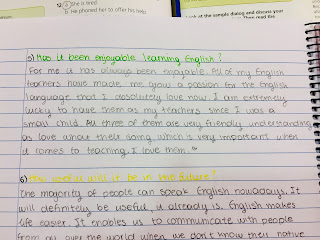 52 a She is tired.
b. He phoned her to offer his help.
Look at the sample dialog and discuss your
5) Has it been enjoyable learning English?
For me it has always been enjoyable. All of my English
teachers have made me grow a passion for the English
language that I absolutely love now. I am extremely
lucky to have them as my teachers since I was a
small child. All three of them are very friendly, understanding
love what their doing which is very important when
it comes to teaching. I love them.
6) How useful will it be in the future?
The majority of people can speak English nowadays. It
will definitely be useful, it already is. English makes
life easier. It enables us to communicate with people
from all over the world when we don't know their native